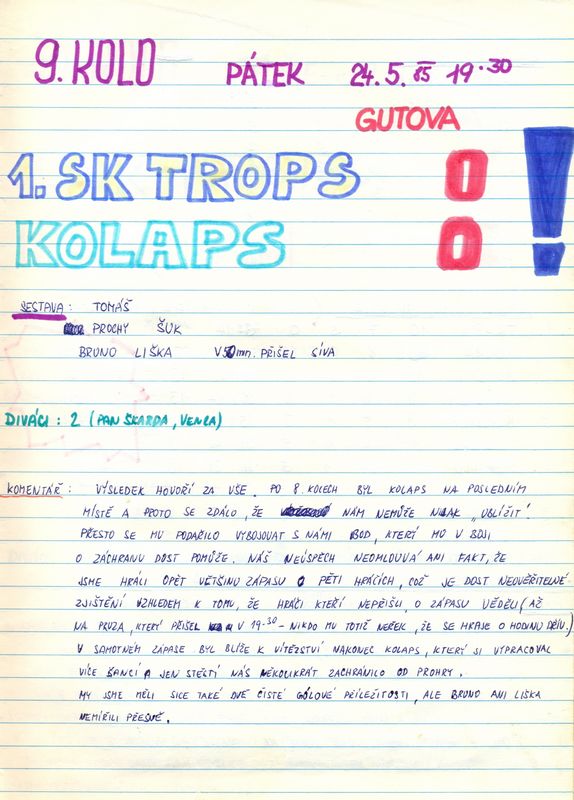 9. KOLO PÁTEK 24.5.85 19.30
GUTOVA
1. SK TROPS 0 !
KOLAPS 0
SESTAVA: TOMÁŠ
PROCHY ŠUK
BRUNO LIŠKA V 50 mn. PŘIŠEL SÍVA
DIVÁCI: 2 (PAN ŠKARDA, VENCA)
KOMENTÁŘ: VÝSLEDEK HOVOŘÍ ZA VŠE. PO 8. KOLECH BYL KOLAPS NA POSLEDNÍM
MÍSTĚ A PROTO SE ZDÁLO, ŽE NÁM NEMŮŽE NIJAK „UBLÍŽIT".
PŘESTO SE MU PODAŘILO VYBOJOVAT S NÁMI BOD, KTERÝ MU V BOJI
O ZÁCHRANU DOST POMŮŽE. NÁŠ NEÚSPĚCH NEOMLOUVÁ ANI FAKT, ŽE
JSME HRÁLI OPĚT VĚTŠINU ZÁPASU O PĚTI HRÁČÍCH, COŽ JE DOST NEUVĚŘITELNÉ
ZJIŠTĚNÍ VZHLEDEM K TOMU, ŽE HRÁČI KTEŘÍ NEPŘIŠLI, O ZÁPASU VĚDĚLI (AŽ
NA PRUZA, KTERÝ PŘIŠEL V 19.30 - NIKDO MU TOTIŽ NEŘEK, ŽE SE HRAJE O HODINU DŘÍV.)
V SAMOTNÉM ZÁPASE BYL BLÍŽE K VÍTĚZSTVÍ NAKONEC KOLAPS, KTERÝ SI VYPRACOVAL
VÍCE ŠANCÍ A JEN ŠTĚSTÍ NÁS NĚKOLIKRÁT ZACHRÁNILO OD PROHRY.
MY JSME MĚLI SICE TAKÉ DVĚ ČISTÉ GÓLOVÉ PŘÍLEŽITOSTI, ALE BRUNO ANI LIŠKA
NEMÍŘILI PŘESNĚ.